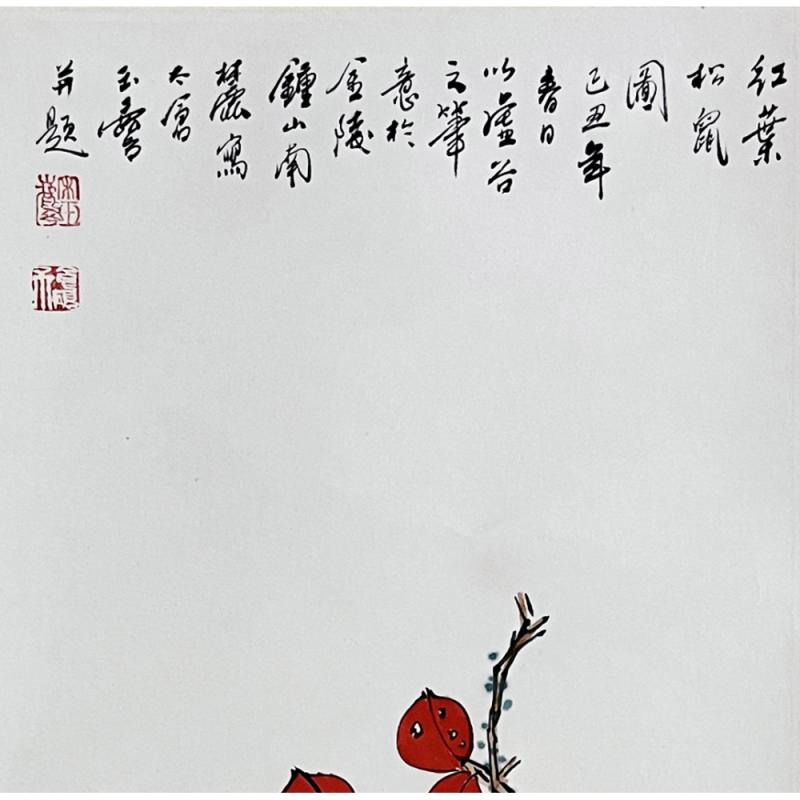 紅葉
松鼠
圖
己丑年
春日
以虛谷
之筆
意於
金陵
鍾山南
麓寫
大層
玉霽
并題